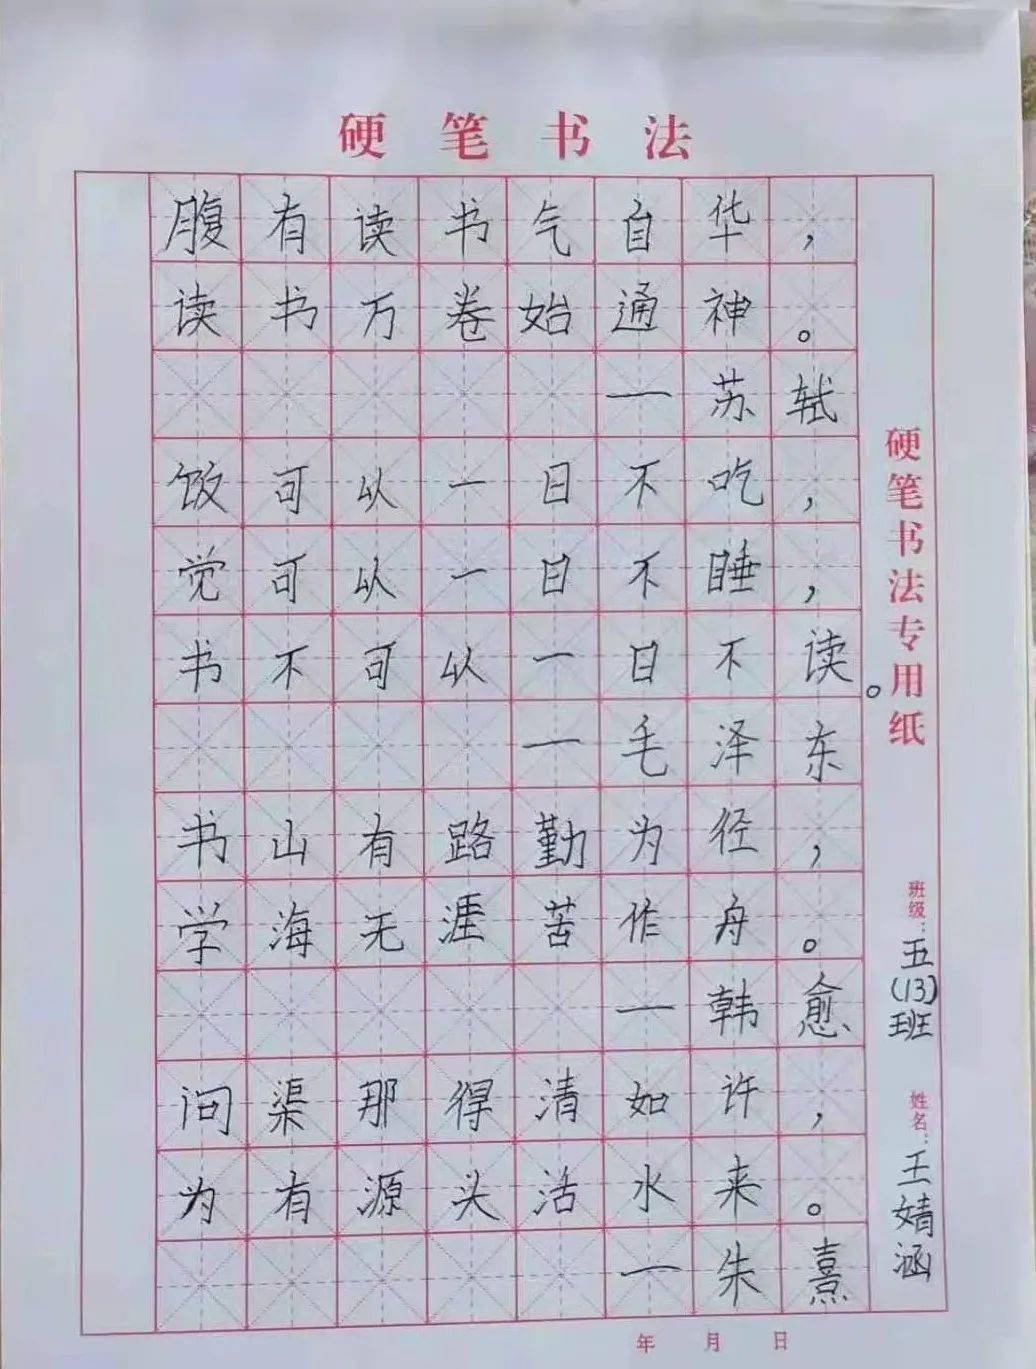 硬笔书法
腹有读书气自华，
读书万卷始通神。
—苏轼
饭可以一日不吃，
觉可以一日不睡，
书不可以一日不读。
—毛泽东
书山有路勤为径，
学海无涯苦作舟。
—韩愈
问渠那得清如许，
为有源头活水来。
—朱熹
硬笔书法专用纸
班级：五(13)班
姓名：王婧涵
年 月 日